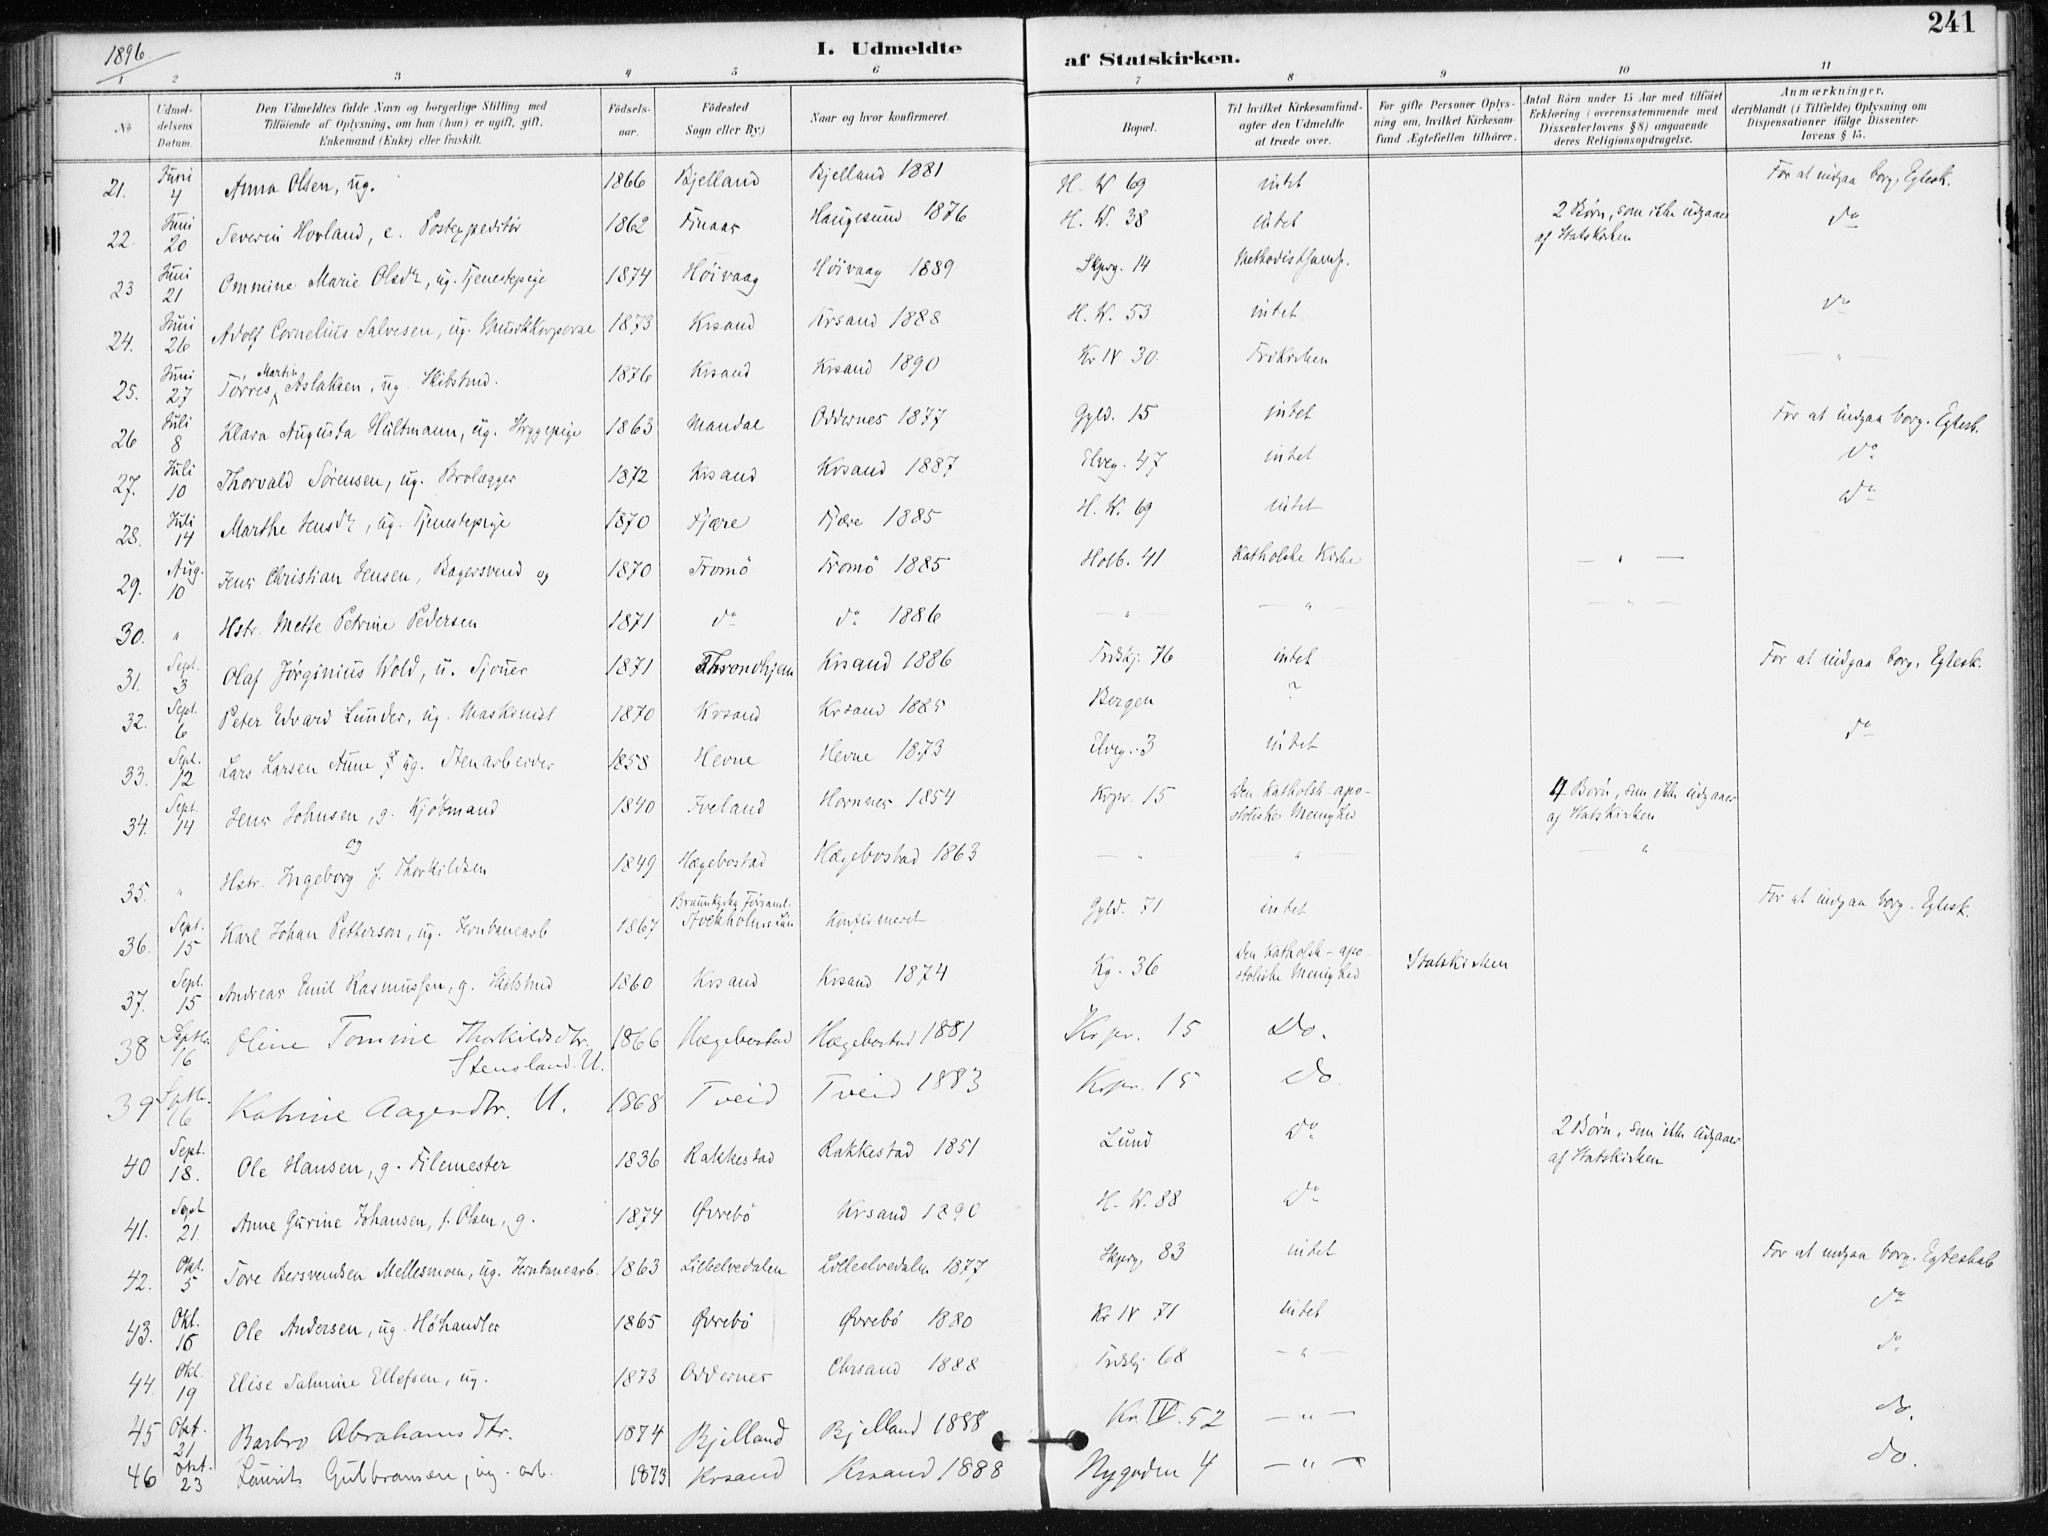 1896
I. Udmeldte af Statskirken.
241
1 2 3 4 5 6 7 8 9 10 11
No
Udmeldelsens Datum.
Den Udmeldtes fulde Navn og borgerlige Stilling med Tilföiende af Oplysning, om han (hun) er ugift, gift, Enkemand (Enke) eller fraskilt.
Födselsaar.
Födested Sogn eller By.)
Naar og hvor konfirmeret.
Bopæl.
Til hvilket Kirkesamfundagter den Udmeldte at træde over.
For gifte Personer Oplysning om, hvilket Kirkesamfund Ægtefællen tilhörer.
Antal Börn under 15 Aar med tilföiet Erklæring (overensstemmende med Dissenterlovens § 8) angaaende deres Religionsopdragelse.
Anmærkninger, deriblandt (i Tilfælde) Oplysning om Dispensationer ifölge Dissenterlovens § 15.
21. Juni 4 Anna Olsen, ug. 1866 Bjelland Bjelland 1881 H. W 69 intet For at indgaa borg. Egtesk.
22. Juni 20 Severin Hovland, e. Postexpeditör 1862 Finaas Haugesund 1876 H. W. 38 intet 2 Börn, som ikke udgaaer af Statskirken do
23 Juni 21 Ommine Marie Olsdtr, ug. Tjenestepige 1874 Höivaag Höivaag 1889 Skperg. 14 Methodistsamf.
24. Juni 26 Adolf Cornelius Salvesen, ug. Musikkorporal 1873 Krsand Krsand 1888 H. W. 53 intet do
25. Juni 27 Törres Martin Aslaksen, ug. Skibstmd. 1876 Krsand Krsand 1890 Kr IV 30 Frikirken — " —
26 Juli 8 Klara Augusta Hultmann, ug. Strygepige 1863 Mandal Oddernes 1877 Gyld. 15 intet For at indgaa borg. Egtesk.
27. Juli 10 Thorvald Sörensen, ug. Brolægger 1872 Krsand Krsand 1887 Elveg. 47 intet do
28. Juli 14 Marthe Jensdtr, ug. Tjenestepige 1870 Fjære Fjære 1885 H. W. 69 intet do
29. Aug. 10 Jens Christian Jensen, Bagersvend og 1870 Tromö Tromö 1885 Holb. 41 Katholske Kirke — " —
30. " Hstr. Mette Petrine Pedersen 1871 do do 1886 — " — — " — — " —
31. Sept. 3 Olaf Jörginius Wold, u. Sjouer 1871 Throndhjem Krsand 1886 Frdskj. 76 intet For at indgaa borg. Egtesk.
32. Sept. 6 Peter Edvard Lunder, ug. Maskinist 1870 Krsand Krsand 1885 Bergen ? do
33. Sept. 12 Lars Larsen Aune ug. Stenarbeider 1858 Hevne Hevne 1873 Elveg. 3 intet
34. Sept. 14 Jens Johnsen, g. Kjöbmand og 1840 Iveland Hornnes 1854 Krpr. 15 Den katholsk-apostoliske Menighed 4 Börn, som ikke udgaaer af Statskirken
35. " Hstr. Ingeborg f. Thorkildsen 1849 Hægebostad Hægebostad 1863 — " — — " — — " —
36. Sept. 15 Karl Johan Petterson, ug. Jernbanearb 1867 Församl. Stockholms Län Konfirmeret Gyld. 71 intet For at indgaa borg. Egtesk.
37. Sept. 15 Andreas Emil Rasmussen, g. Skibstmd 1860 Krsand Krsand 1874 Kg. 36 Den katholsk-apostoliske Menighed Statskirken
38 Septbr. 16 Oline Tomine Thorkildsdtr. Stensland. U. 1866 Hægebostad Hægebostad 1881 Krpr. 15 Do.
39 Septbr. 16 Katrine Aagesdtr. U. 1868 Tveid Tveid 1883 Krpr. 15 do
40 Sept. 18. Ole Hansen, g. Filemester 1836 Rakkestad Rakkestad 1851 Lund do 2 Börn, som ikke udgaaer af Statskirken
41. Sept 21. Anne Gurine Johansen, f. Olsen, g. 1874 Øvrebö Krsand 1890 H. W. 88 do
42. Okt. 5 Tore Bersvendsen Mellesmoen, ug. Jernbanearb. 1863 Lilleelvedalen Lilleelvedalen 1877 Skperg. 83 intet For at indgaa borg. Egteskab
43. Okt. 15 Ole Andersen, ug. Höhandler 1865 Øvrebö Øvrebö 1880 Kr IV 71 intet do
44. Okt. 19 Elise Salmine Ellefsen, ug. 1873 Oddernes Chrsand 1888 Frdskj 68 — " — do
45 Okt. 21 Barbro Abrahamsdtr. 1874 Bjelland Bjelland 1888 Kr. IV. 52 — " — do.
46 Okt. 23 Laurits Gulbransen, ug. arb. 1873 Krsand Krsand 1888 Nygaden 4 — " — do.